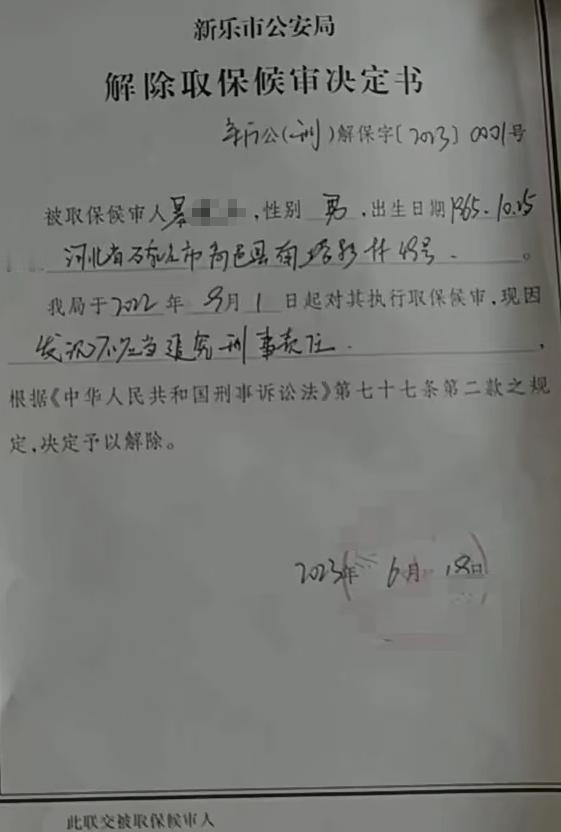 新乐市公安局
解除取保候审决定书
新公(刑)解保字[2023]0021号
被取保候审人,性别 男 ,出生日期1965.10.25
河北省石家庄市高邑县 49号.。
我局于2022年 9月 1 日起对其执行取保候审,现因
发现不应当追究刑事责任.,
根据《中华人民共和国刑事诉讼法》第七十七条第二款之规
定,决定予以解除。
2023年 6月 18日
此联交被取保候审人